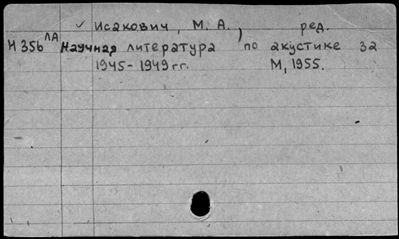 ✓ Исакович, М. А., ред.
И 356 ЛА Научная литература по акустике за
1945-1949 гг. М, 1955.